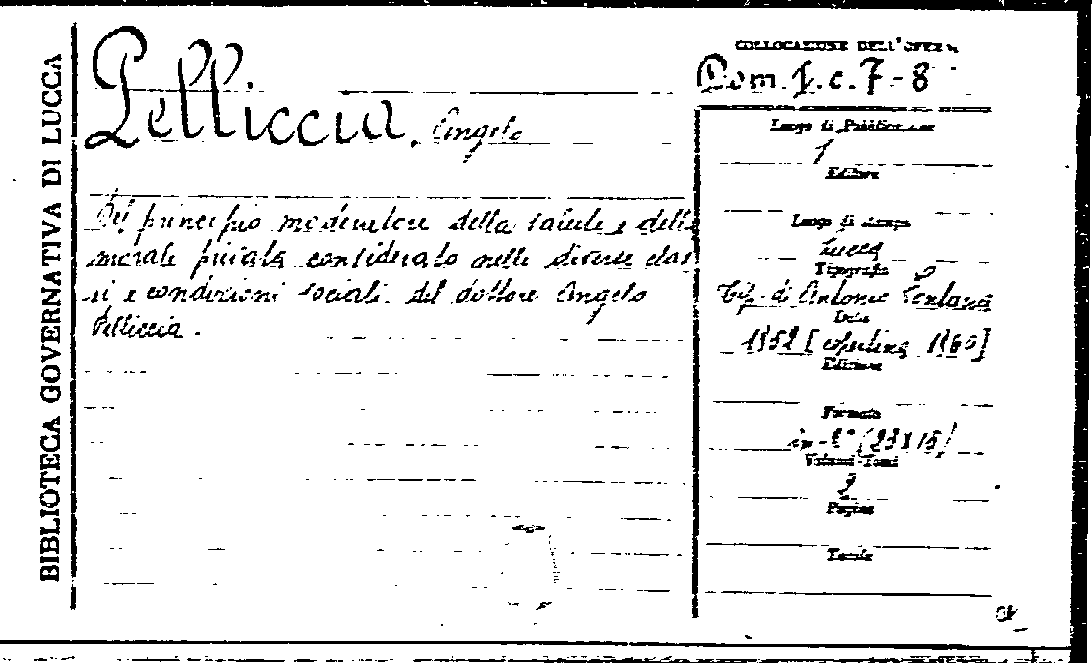 BIBLIOTECA GOVERNATIVA DI LUCCA
Pelliccia, Angelo
Del principio moderatore della salute e della
morale privata considerato nelle diverse clas
si e condizioni sociali. del dottore Angelo
Pelliccia.
COLLOCAZIONE DELL'OPERA
Dom. I. c. 7-8
Luogo di Pubblicazione
Editore
Luogo di stampa
Lucca
Tipografia
Tip. di Antonio Fontana
Data
1852 [copertina 1860]
Edizione
Formato
in-8° (23x15)
Volumi-Tomi
2
Pagine
Tavole